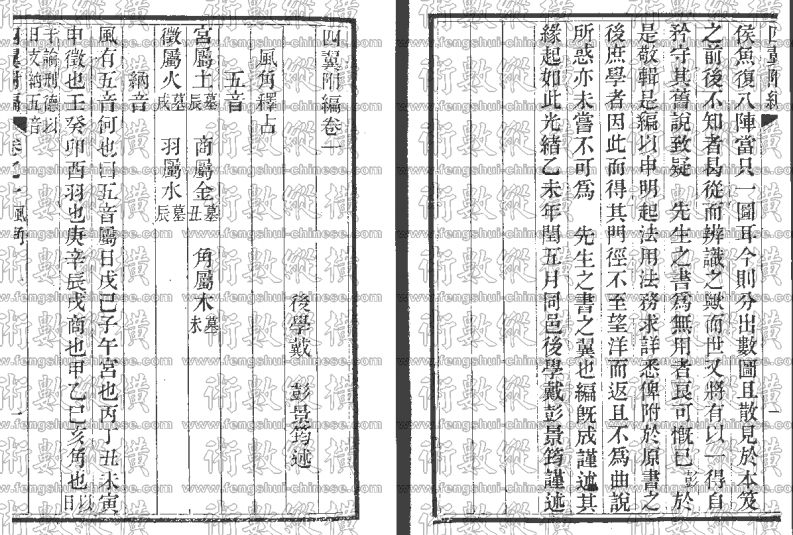 四翼附編
侯魚復八陣當只一圖耳今則分出數圖且散見於本笈
之前後不知者曷從而辨識之歟而世又將有以一得自
矜守其舊說致疑 先生之書爲無用者良可慨已 於
是敬輯是編以申明起法用法務求詳悉俾附於原書之
後庶學者因此而得其門徑不至望洋而返且不爲曲說
所惑亦未嘗不可爲 先生之書之翼也編旣成謹述其
緣起如此光緒乙未年閏五月同邑後學戴彭景筠謹述
四翼附編卷一
後學戴 彭景筠述
風角釋占
五音
宮屬土墓辰 商屬金墓丑 角屬木墓未
徵屬火墓戌 羽屬水墓辰
納音
風有五音何也曰五音屬日戊己子午宮也丙丁丑未寅
申徵也壬癸卯酉羽也庚辛辰戌商也甲乙巳亥角也以日
干論刑德以
日支納五音
四翼附編
卷一 風角
一
www.fengshui-chinese.com
術數縱橫